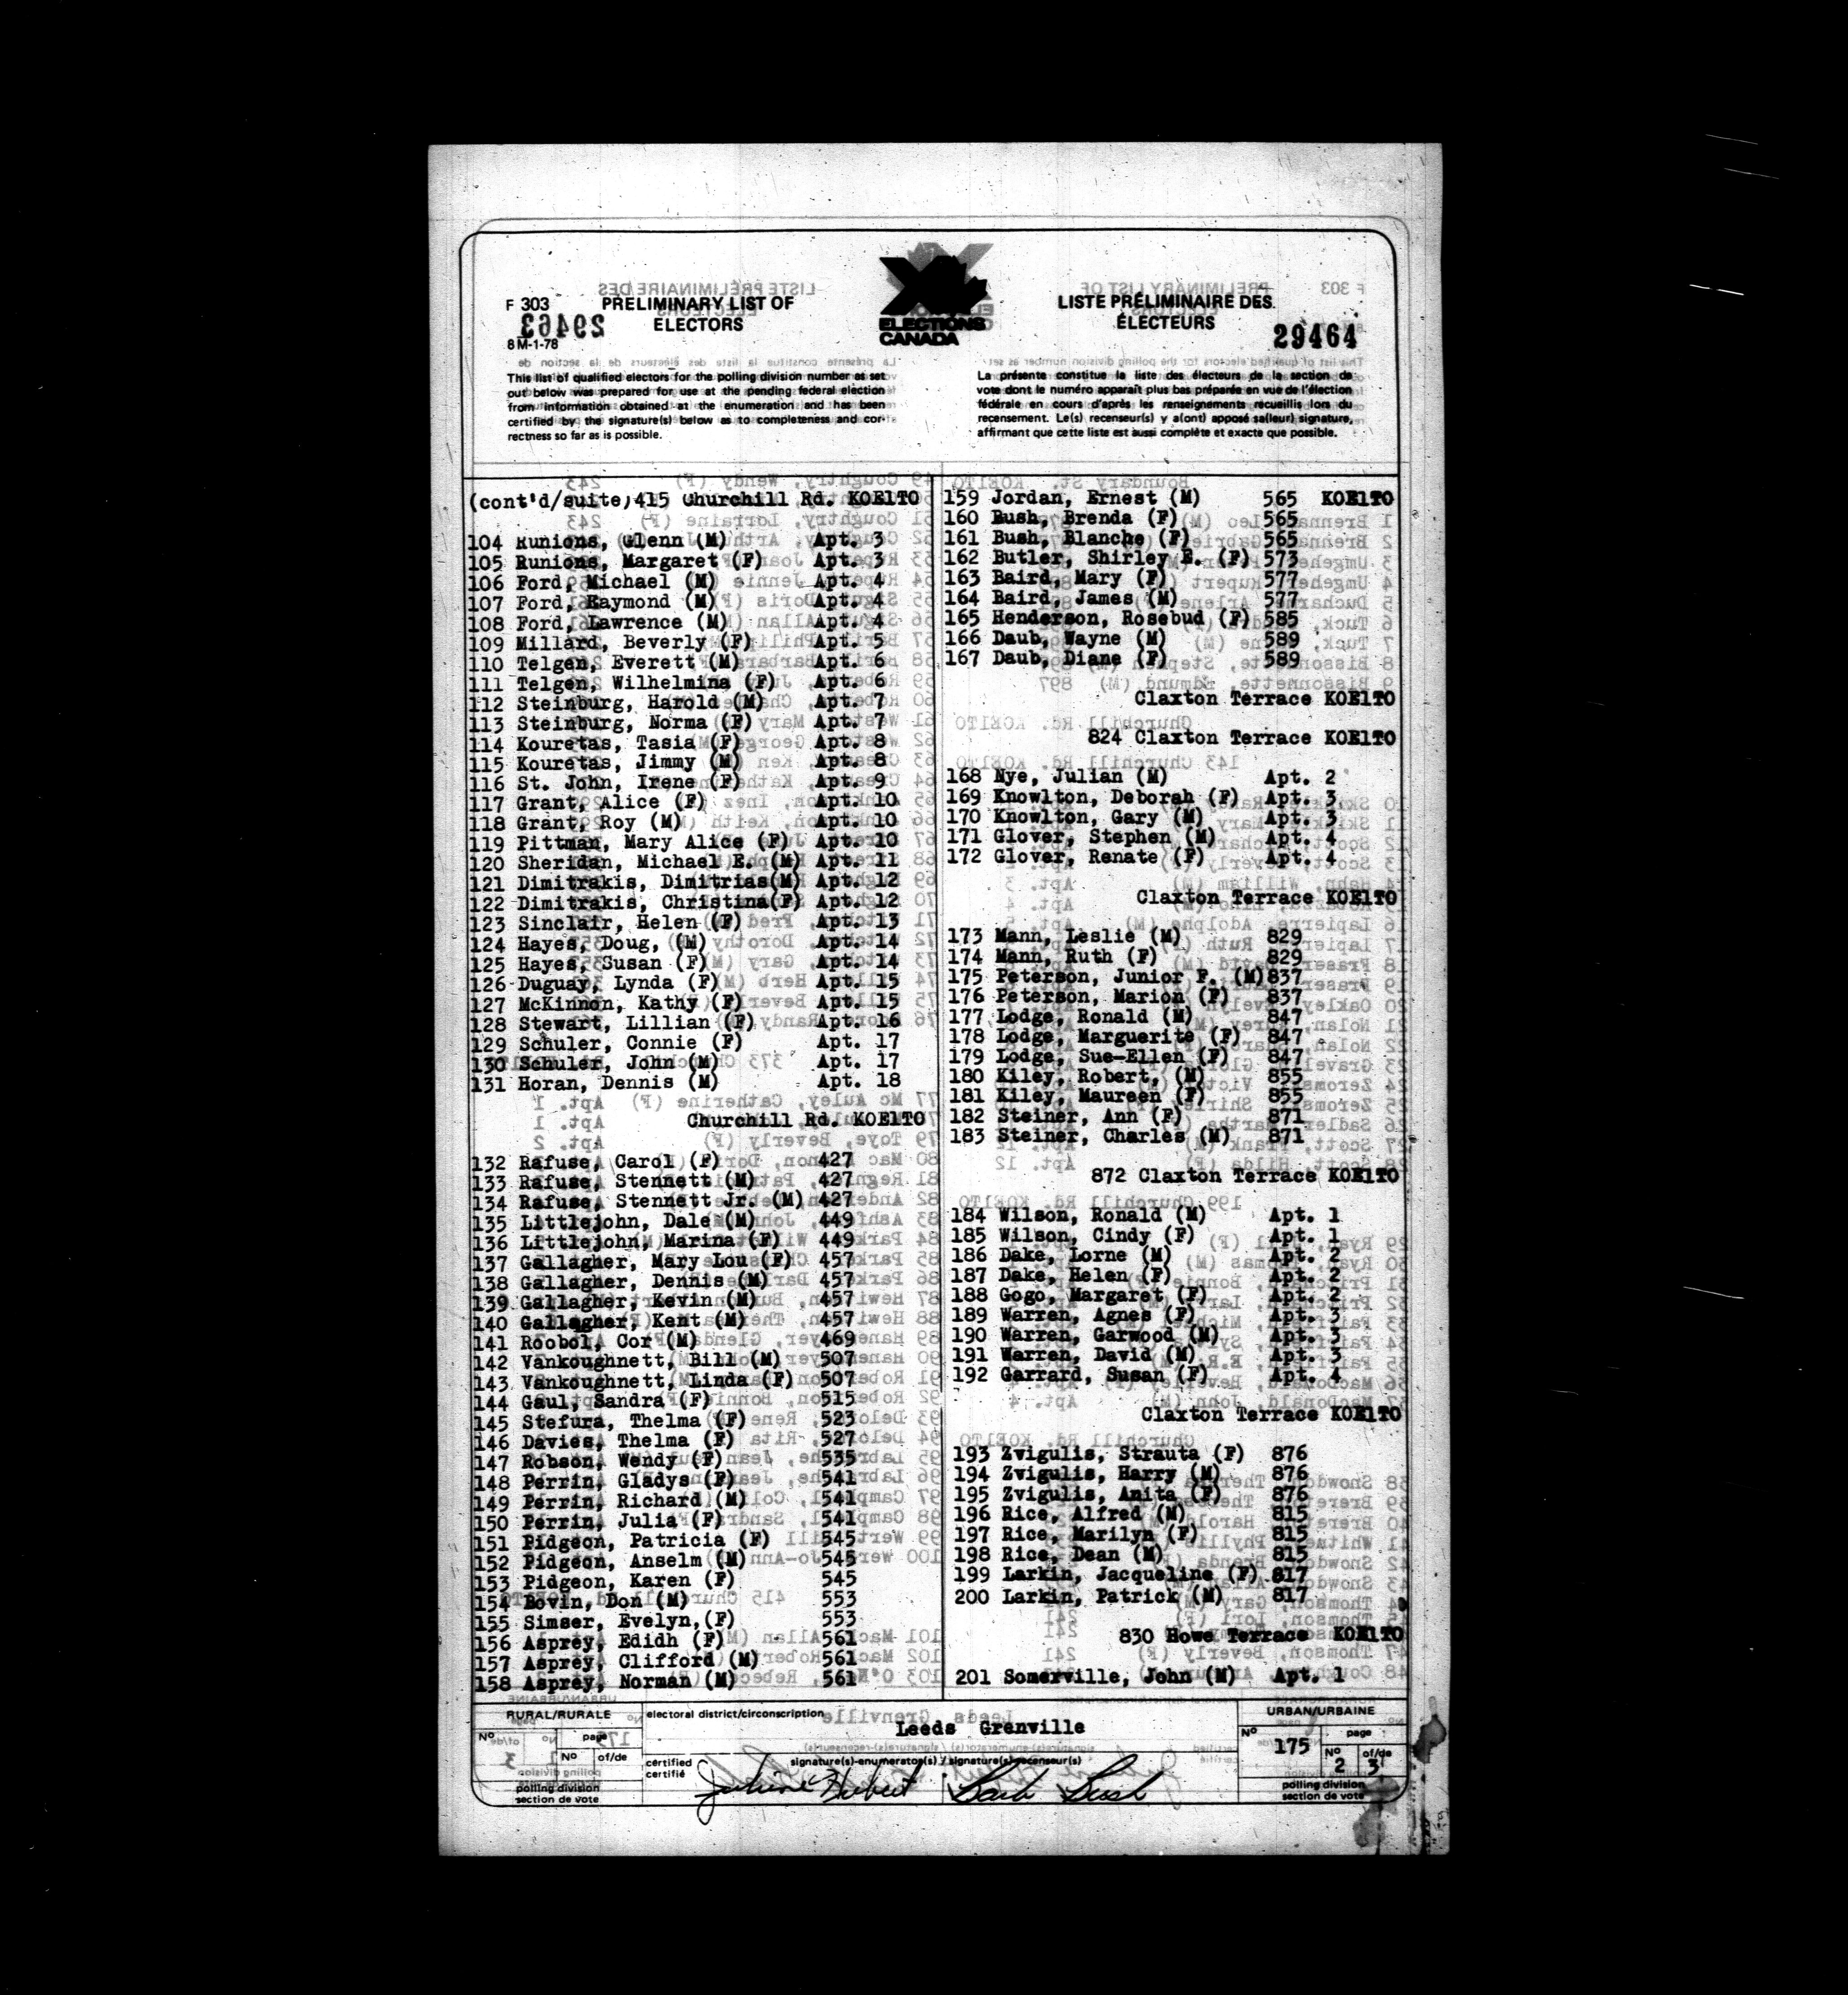 F 303
PRELIMINARY LIST OF
ELECTORS
8 M-1-78
ELECTIONS
CANADA
LISTE PRÉLIMINAIRE DES
ÉLECTEURS
29464
This list of qualified electors for the polling division number as set
out below was prepared for use at the pending federal election
from information obtained at the enumeration and has been
certified by the signature(s) below as to completeness and cor-
rectness so far as is possible.
La présente constitue la liste des électeurs de la section de
vote dont le numéro apparaît plus bas préparée en vue de l'élection
fédérale en cours d'après les renseignements recueillis lors du
recensement. Le(s) recenseur(s) y a(ont) apposé sa(leur) signature,
affirmant que cette liste est aussi complète et exacte que possible.
(cont'd/suite)415 Churchill Rd. KOE1TO
104 Runions, Glenn (M) Apt. 3
105 Runions, Margaret (F) Apt. 3
106 Ford, Michael (M) Apt. 4
107 Ford, Raymond (M) Apt. 4
108 Ford, Lawrence (M) Apt. 4
109 Millard, Beverly (F) Apt. 5
110 Telgen, Everett (M) Apt. 6
111 Telgen, Wilhelmina (F) Apt. 6
112 Steinburg, Harold (M) Apt. 7
113 Steinburg, Norma (F) Apt. 7
114 Kouretas, Tasia (F) Apt. 8
115 Kouretas, Jimmy (M) Apt. 8
116 St. John, Irene (F) Apt. 9
117 Grant, Alice (F) Apt. 10
118 Grant, Roy (M) Apt. 10
119 Pittman, Mary Alice (F) Apt. 10
120 Sheridan, Michael E. (M) Apt. 11
121 Dimitrakis, Dimitrias(M) Apt. 12
122 Dimitrakis, Christina(F) Apt. 12
123 Sinclair, Helen (F) Apt. 13
124 Hayes, Doug, (M) Apt. 14
125 Hayes, Susan (F) Apt. 14
126 Duguay, Lynda (F) Apt. 15
127 McKinnon, Kathy (F) Apt. 15
128 Stewart, Lillian (F) Apt. 16
129 Schuler, Connie (F) Apt. 17
130 Schuler, John (M) Apt. 17
131 Horan, Dennis (M) Apt. 18
Churchill Rd. KOE1TO
132 Rafuse, Carol (F) 427
133 Rafuse, Stennett (M) 427
134 Rafuse, Stennett Jr. (M) 427
135 Littlejohn, Dale (M) 449
136 Littlejohn, Marina (F) 449
137 Gallagher, Mary Lou (F) 457
138 Gallagher, Dennis (M) 457
139 Gallagher, Kevin (M) 457
140 Gallagher, Kent (M) 457
141 Roobol, Cor (M) 469
142 Vankoughnett, Bill (M) 507
143 Vankoughnett, Linda (F) 507
144 Gaul, Sandra (F) 515
145 Stefura, Thelma (F) 523
146 Davies, Thelma (F) 527
147 Robson, Wendy (F) 535
148 Perrin, Gladys (F) 541
149 Perrin, Richard (M) 541
150 Perrin, Julia (F) 541
151 Pidgeon, Patricia (F) 545
152 Pidgeon, Anselm (M) 545
153 Pidgeon, Karen (F) 545
154 Bovin, Don (M) 553
155 Simser, Evelyn,(F) 553
156 Asprey, Edidh (F) 561
157 Asprey, Clifford (M) 561
158 Asprey, Norman (M) 561
159 Jordan, Ernest (M) 565 KOE1TO
160 Bush, Brenda (F) 565
161 Bush, Blanche (F) 565
162 Butler, Shirley E. (F) 573
163 Baird, Mary (F) 577
164 Baird, James (M) 577
165 Henderson, Rosebud (F) 585
166 Daub, Wayne (M) 589
167 Daub, Diane (F) 589
Claxton Terrace KOE1TO
824 Claxton Terrace KOE1TO
168 Nye, Julian (M) Apt. 2
169 Knowlton, Deborah (F) Apt. 3
170 Knowlton, Gary (M) Apt. 3
171 Glover, Stephen (M) Apt. 4
172 Glover, Renate (F) Apt. 4
Claxton Terrace KOE1TO
173 Mann, Leslie (M) 829
174 Mann, Ruth (F) 829
175 Peterson, Junior F. (M)837
176 Peterson, Marion (F) 837
177 Lodge, Ronald (M) 847
178 Lodge, Marguerite (F) 847
179 Lodge, Sue-Ellen (F) 847
180 Kiley, Robert, (M) 855
181 Kiley, Maureen (F) 855
182 Steiner, Ann (F) 871
183 Steiner, Charles (M) 871
872 Claxton Terrace KOE1TO
184 Wilson, Ronald (M) Apt. 1
185 Wilson, Cindy (F) Apt. 1
186 Dake, Lorne (M) Apt. 2
187 Dake, Helen (F) Apt. 2
188 Gogo, Margaret (F) Apt. 2
189 Warren, Agnes (F) Apt. 3
190 Warren, Garwood (M) Apt. 3
191 Warren, David (M) Apt. 3
192 Garrard, Susan (F) Apt. 4
Claxton Terrace KOE1TO
193 Zvigulis, Strauta (F) 876
194 Zvigulis, Harry (M) 876
195 Zvigulis, Anita (F) 876
196 Rice, Alfred (M) 815
197 Rice, Marilyn (F) 815
198 Rice, Dean (M) 815
199 Larkin, Jacqueline (F) 817
200 Larkin, Patrick (M) 817
830 Howe Terrace KOE1TO
201 Somerville, John (M) Apt. 1
RURAL/RURALE
No
page
No of/de
polling division
section de vote
electoral district/circonscription
Leeds Grenville
certified
certifié
signature(s)-enumerator(s) / signature(s)-recenseur(s)
Hubert Barb Bush
URBAN/URBAINE
No
175
page
No of/de
2 3
polling division
section de vote